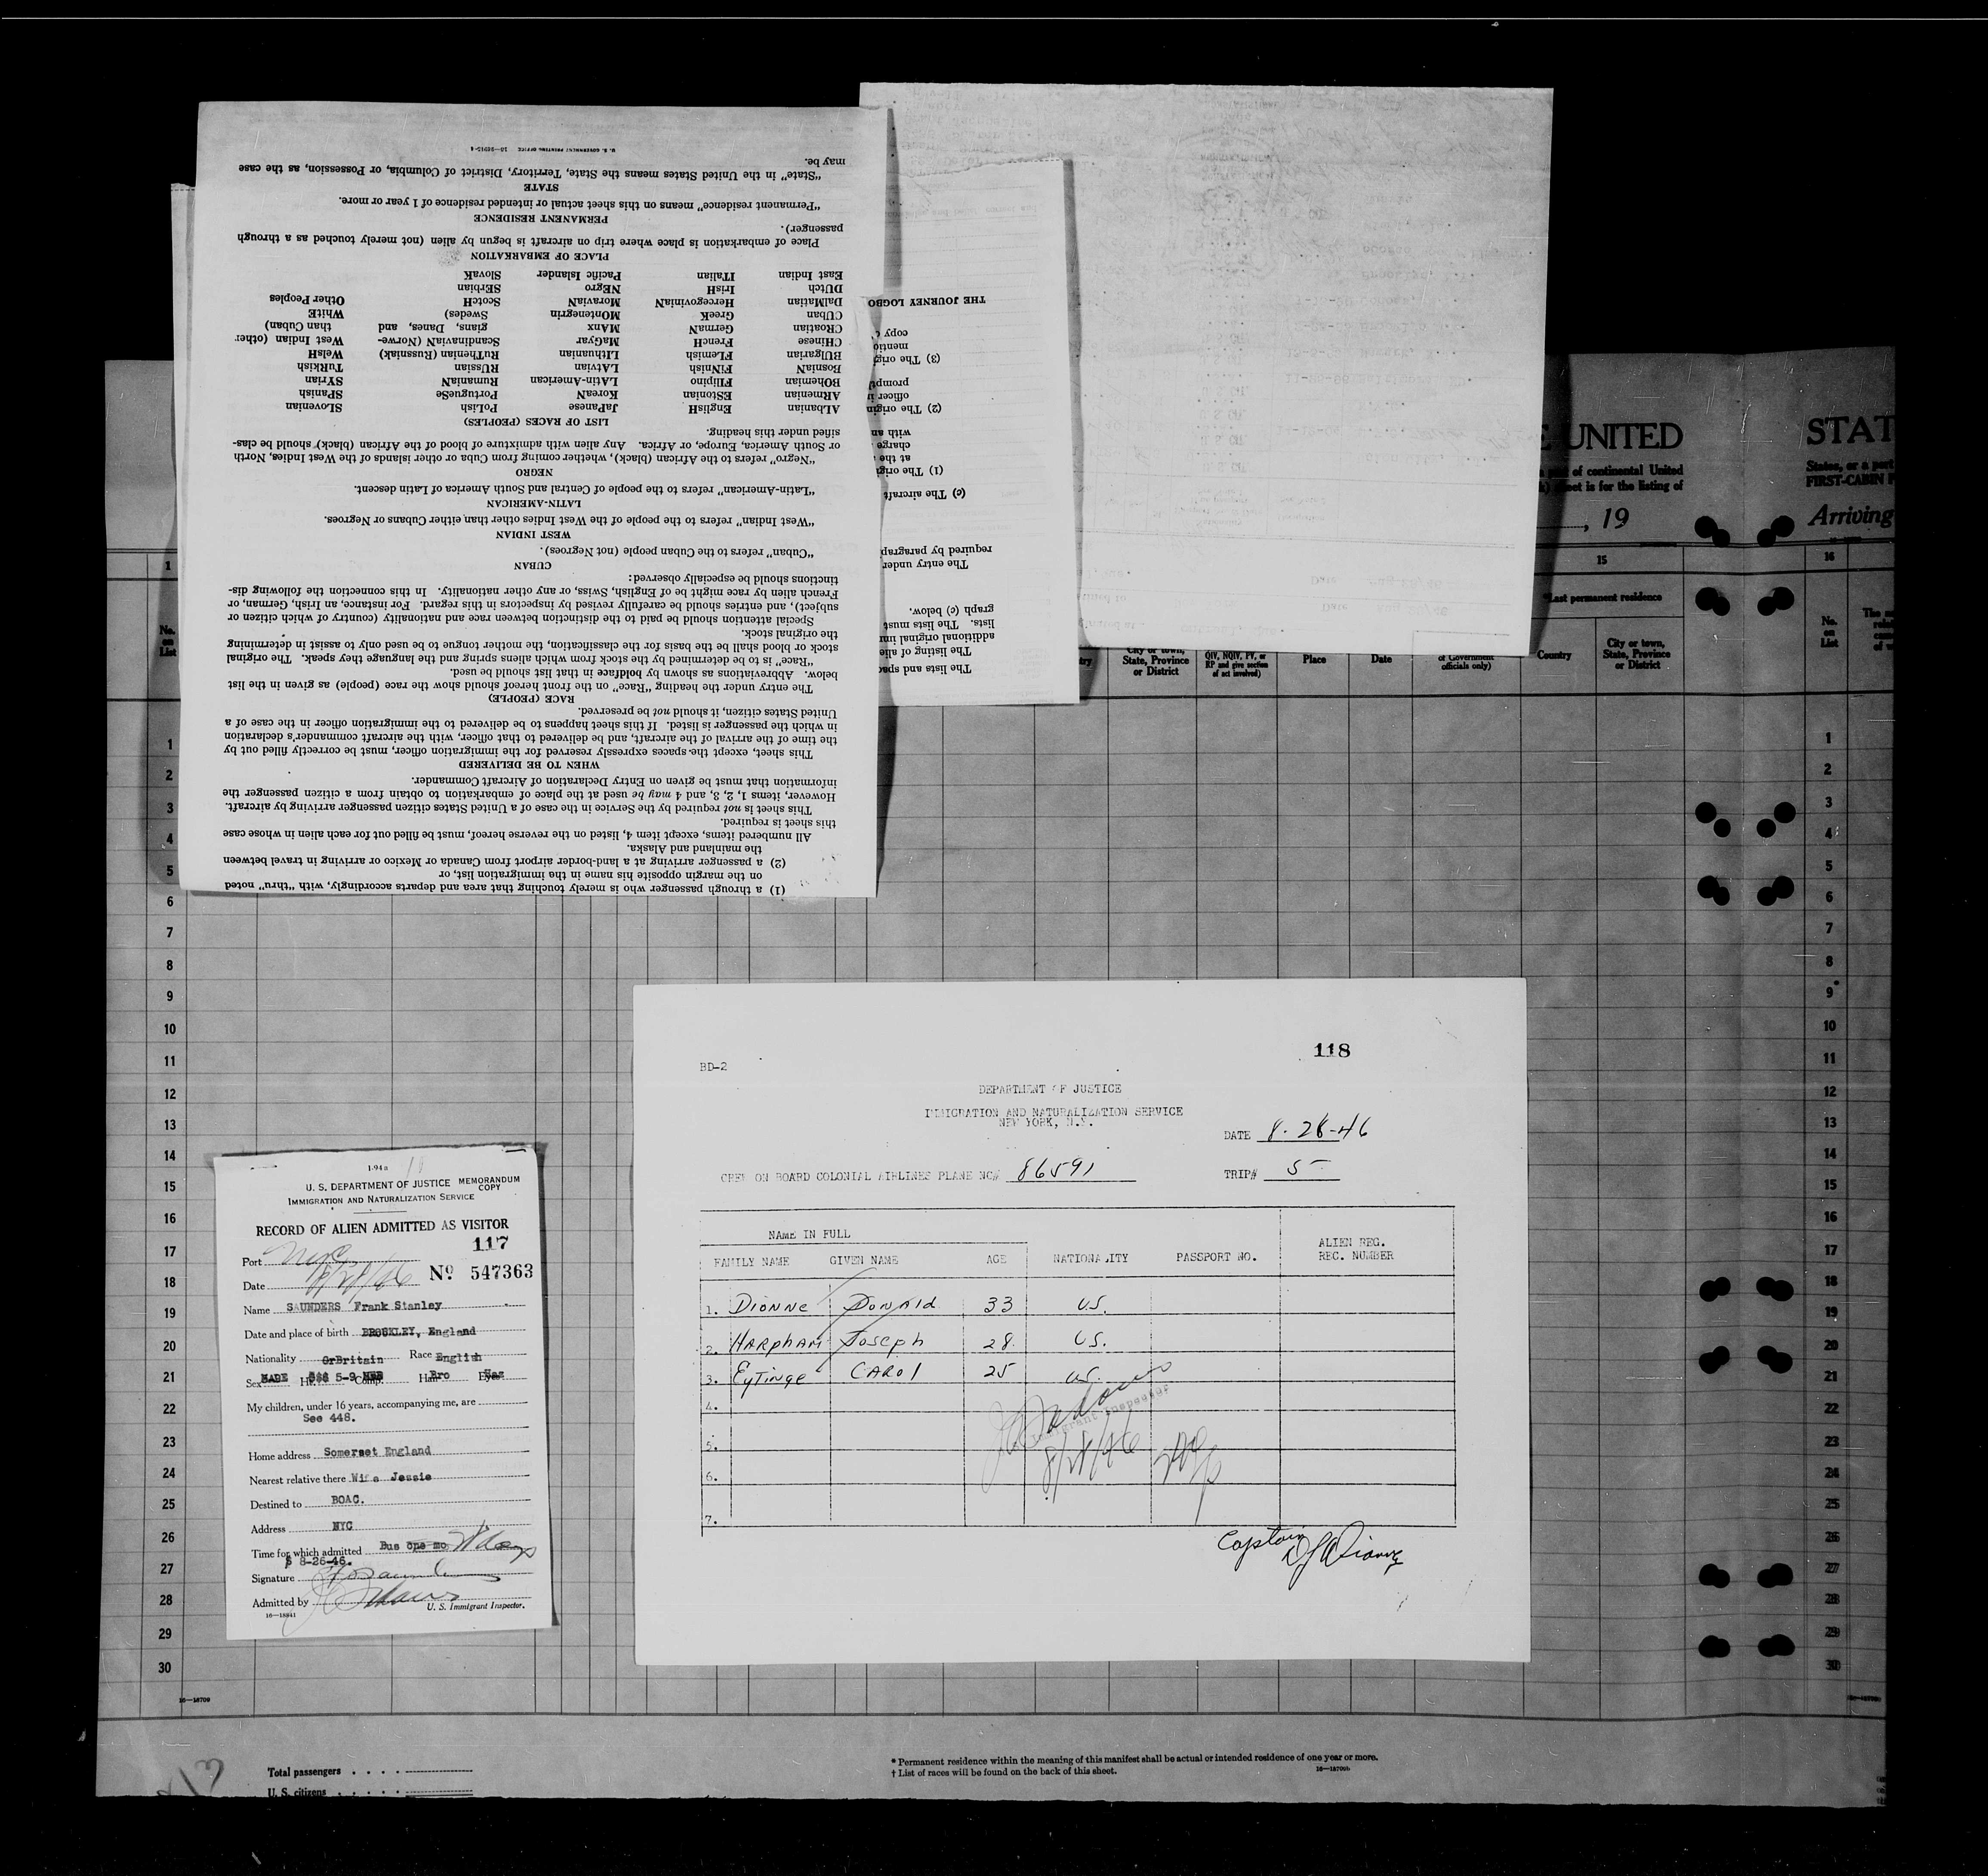 U. S. GOVERNMENT PRINTING OFFICE
(1) a through passenger who is merely touching that area and departs accordingly, with "thru" noted
on the margin opposite his name in the immigration list, or
(2) a passenger arriving at a land-border airport from Canada or Mexico or arriving in travel between
the mainland and Alaska.
All numbered items, except item 4, listed on the reverse hereof, must be filled out for each alien in whose case
this sheet is required.
This sheet is not required by the Service in the case of a United States citizen passenger arriving by aircraft.
However, items 1, 2, 3, and 4 may be used at the place of embarkation to obtain from a citizen passenger the
information that must be given on Entry Declaration of Aircraft Commander.
WHEN TO BE DELIVERED
This sheet, except the spaces expressly reserved for the immigration officer, must be correctly filled out by
the time of the arrival of the aircraft, and be delivered to that officer, with the aircraft commander's declaration
in which the passenger is listed. If this sheet happens to be delivered to the immigration officer in the case of a
United States citizen, it should not be preserved.
RACE (PEOPLE)
The entry under the heading "Race" on the front hereof should show the race (people) as given in the list
below. Abbreviations as shown by boldface in that list should be used.
"Race" is to be determined by the stock from which aliens spring and the language they speak. The original
stock or blood shall be the basis for the classification, the mother tongue to be used only to assist in determining
the original stock.
Special attention should be paid to the distinction between race and nationality (country of which citizen or
subject), and entries should be carefully revised by inspectors in this regard. For instance, an Irish, German, or
French alien by race might be of English, Swiss, or any other nationality. In this connection the following dis-
tinctions should be especially observed:
CUBAN
"Cuban" refers to the Cuban people (not Negroes).
WEST INDIAN
"West Indian" refers to the people of the West Indies other than either Cubans or Negroes.
LATIN-AMERICAN
"Latin-American" refers to the people of Central and South America of Latin descent.
NEGRO
"Negro" refers to the African (black), whether coming from Cuba or other islands of the West Indies, North
or South America, Europe, or Africa. Any alien with admixture of blood of the African (black) should be clas-
sified under this heading.
LIST OF RACES (PEOPLES)
AlBanian EnglisH JaPanese PoLish SLOvenian
ARmenian EStonian KoreaN PortugueSe SPanish
BOHemian FIlipino LAtin-American RumaniaN SYrian
BosniaN FINnish LAtvian RUssian TurKish
BUlgarian FLemish LIthuanian RuThenian (Russniak) WelsH
CHInese FrencH MaGyar Scandinavian (Norwe- West Indian (other
CROatian GermaN MAnx gians, Danes, and than Cuban)
CUban GreeK MOntenegrin Swedes) WhitE
DalMatian HercegoviniaN MoraviaN ScotcH Other Peoples
DUtch IrisH NEgro SErbian
East Indian ITalian Pacific Islander SlovaK
PLACE OF EMBARKATION
Place of embarkation is place where trip on aircraft is begun by alien (not merely touched as a through
passenger).
PERMANENT RESIDENCE
"Permanent residence" means on this sheet actual or intended residence of 1 year or more.
STATE
"State" in the United States means the State, Territory, District of Columbia, or Possession, as the case
may be.
The lists and spac
The listing of alie
additional original imm
lists. The lists must
graph (c) below.
The entry under
required by paragrap
(c) The aircraft
(1) The origi
at the
charge
with an
(2) The origin
officer i
prompt
(3) The orig
mentio
copy
THE JOURNEY LOGBO
E UNITED
of continental United
sheet is for the listing of
, 19
15
*Last permanent residence
Country
City or town,
State, Province
or District
City or town,
State, Province
or District
QIV, NQIV, PV, or
RP and give section
of act involved)
Place
Date
of Government
officials only)
STAT
States, or a port
FIRST-CABIN P
Arriving
16
No.
on
List
1
No.
on
List
1
2
3
4
5
6
7
8
9
10
11
12
13
14
15
16
17
18
19
20
21
22
23
24
25
26
27
28
29
30
16—18709
1
2
3
4
5
6
7
8
9
10
11
12
13
14
15
16
17
18
19
20
21
22
23
24
25
26
27
28
29
30
I-94a
U. S. DEPARTMENT OF JUSTICE MEMORANDUM COPY
IMMIGRATION AND NATURALIZATION SERVICE
RECORD OF ALIEN ADMITTED AS VISITOR
117
Port NYC
Date 8/28/46 No 547363
Name SAUNDERS Frank Stanley
Date and place of birth BROCKLEY, England
Nationality GrBritain Race English
Sex Ht. 5-9 Comp. Hair Bro Eyes
My children, under 16 years, accompanying me, are
See 448.
Home address Somerset England
Nearest relative there Wife Jessie
Destined to BOAC.
Address NYC
Time for which admitted Bus one mo
8-26-46.
Signature
Admitted by
16—18841 U. S. Immigrant Inspector.
118
BD-2
DEPARTMENT OF JUSTICE
IMMIGRATION AND NATURALIZATION SERVICE
NEW YORK, N.Y.
DATE 8-28-46
CREW ON BOARD COLONIAL AIRLINES PLANE NO# 86591 TRIP# 5
NAME IN FULL
FAMILY NAME GIVEN NAME AGE NATIONALITY PASSPORT NO. ALIEN REG. REC. NUMBER
1. Dionne Donald 33 U.S.
2. Harpham Joseph 28 U.S.
3. Eytinge CAROl 25 U.S.
4.
Immigrant Inspector
5.
8/28/46
6.
7.
Captain
Total passengers . . . .
U. S. citizens . . . . .
* Permanent residence within the meaning of this manifest shall be actual or intended residence of one year or more.
† List of races will be found on the back of this sheet.